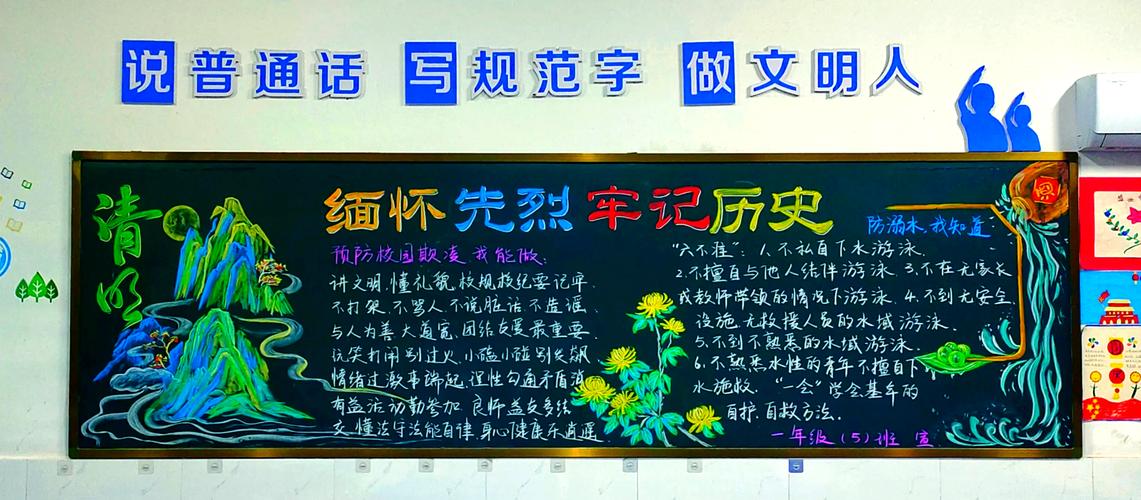 说普通话 写规范字 做文明人
清明
缅怀先烈 牢记历史
预防校园欺凌,我能做:
讲文明,懂礼貌,校规校纪要记牢,
不打架,不骂人,不说脏话不造谣,
与人为善大道宽,团结友爱最重要,
玩笑打闹别过火,小磕小碰别失飙,
情绪过激事端起,理性勾通矛盾消,
有益活动勤参加,良师益友多结
交,懂法守法能自律,身心健康乐逍遥
防溺水,我知道
“六不准”:1.不私自下水游泳.
2.不擅自与他人结伴游泳.3.不在无家长
或教师带领的情况下游泳.4.不到无安全
设施,无救援人员的水域游泳.
5.不到不熟悉的水域游泳.
6.不熟悉水性的青年不擅自下
水施救.“一会”学会基本的
自护,自救方法.
一年级(5)班 宣